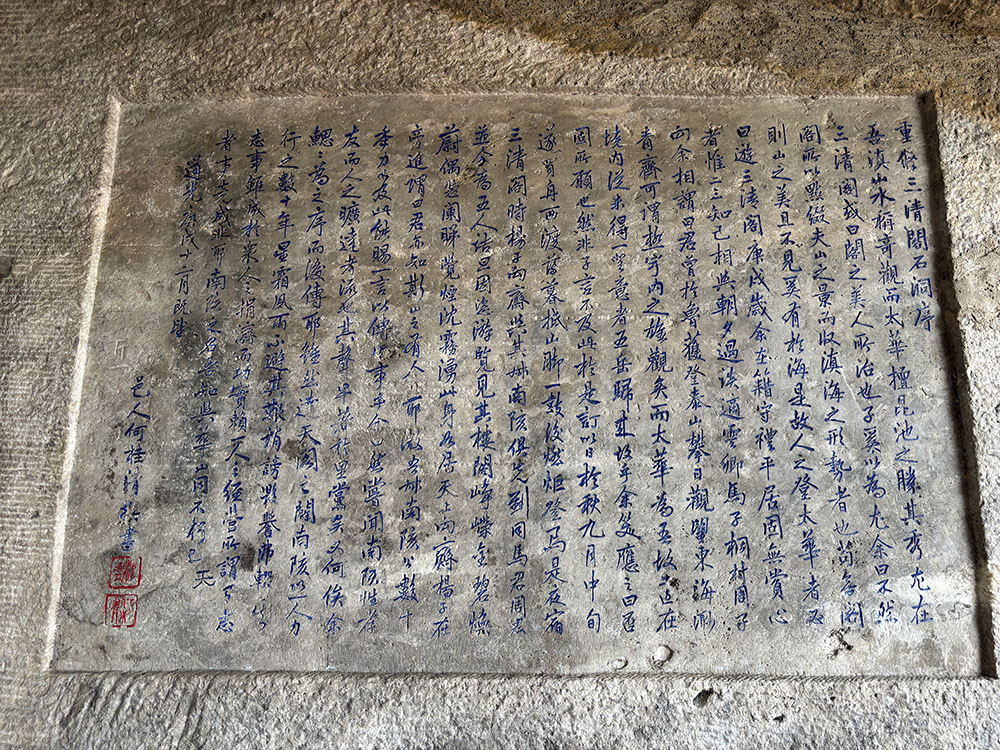 重修三清閣石洞序
吾滇山水稱奇觀而太華擅昆池之勝其秀尤在
三清閣或曰閣之美人所治也子奚以為尤余曰不然
閣所以點綴夫山之景而收滇海之形勢者也苟無閣
則山之美且不見奚有於海是故人之登太華者必
曰遊三清閣庚戌歲余在籍守禮平居固無賞心
者惟二三知己相與朝夕過談適雲卿馬子桐村周子
向余相謂曰君曾於魯獲登泰山攀日觀望東海渺
青齊可謂極宇內之雄觀矣而太華為五故土在
境內從未得一登意者五岳歸來故乎余笑應之曰否
固所願也然非子言不及此於是訂以日於秋九月中旬
遂買舟西渡薄暮抵山脚一鼓後燃炬登焉是夜宿
三清閣時楊子丙齋與其姊南陔俱先到同馬君周君
並余為五人詰旦因流游覽見其樓閣崢嶸金碧煥
蔚偶凭闌睇覺煙沈霧湧此身如居天上而丙齋楊子在
旁進謂曰君亦知斯山之有人耶微吾姊南陔公數十
季力不及此能賜一言以傳其事乎余曰然嘗聞南陔性孝
友而人之曠達考涿也其聲早蓉於里黨矣又何俟余
鰓鰓為之序而後傳耶繼其達天閣之闢南陔以一人力
行之數十年星霜風雨不避其艱誚謗毀譽弗輟
志事雖成於眾人之捐齋而功實賴夫人之經營所謂有志
者事克成非耶南陔之名當知與華山同不朽已
道光庚戌十一月既望
邑人何桂清 書